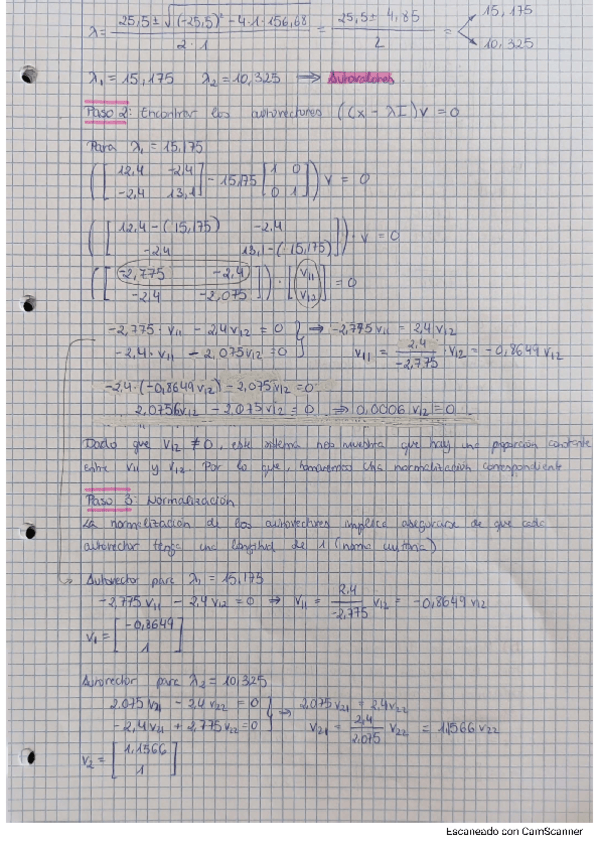 λ = (25,5 ± √((-25,5)² - 4·1·156,68)) / (2·1) = (25,5 ± 4,85) / 2 = 15,175 10,325
λ₁ = 15,175 λ₂ = 10,325 → Autovalores
Paso 2: Encontrar los autovectores ((x - λI)v = 0
Para λ₁ = 15,175
([12,4 -2,4; -2,4 13,1] - 15,175 [1 0; 0 1]) v = 0
([12,4-(15,175) -2,4; -2,4 13,1-(15,175)]) · v = 0
([-2,775 -2,4; -2,4 -2,075]) · [v₁₁; v₁₂] = 0
-2,775 · v₁₁ - 2,4v₁₂ = 0 ⇒ -2,775v₁₁ = 2,4v₁₂
-2,4 · v₁₁ - 2,075v₁₂ = 0 v₁₁ = 2,4/-2,775 · v₁₂ = -0,8649 v₁₂
-2,4·(-0,8649v₁₂) - 2,075v₁₂ = 0
2,0756v₁₂ - 2,075v₁₂ = 0 ⇒ 0,0006 v₁₂ = 0
Dado que v₁₂ ≠ 0, este sistema nos muestra que hay una proporción constante
entre v₁₁ y v₁₂. Por lo que, tomaremos una normalización correspondiente
Paso 3: Normalización
La normalización de los autovectores implica asegurarse de que cada
autovector tenga una longitud de 1 (norma unitaria)
Autovector para λ₁ = 15,175
-2,775 v₁₁ - 2,4v₁₂ = 0 ⇒ v₁₁ = 2,4/-2,775 v₁₂ = -0,8649 v₁₂
v₁ = [-0,8649; 1]
Autovector para λ₂ = 10,325
2,075v₂₁ - 2,4v₂₂ = 0 ⇒ 2,075v₂₁ = 2,4v₂₂
-2,4v₂₁ + 2,775v₂₂ = 0 v₂₁ = 2,4/2,075 v₂₂ = 1,1566 v₂₂
v₂ = [1,1566; 1]
Escaneado con CamScanner